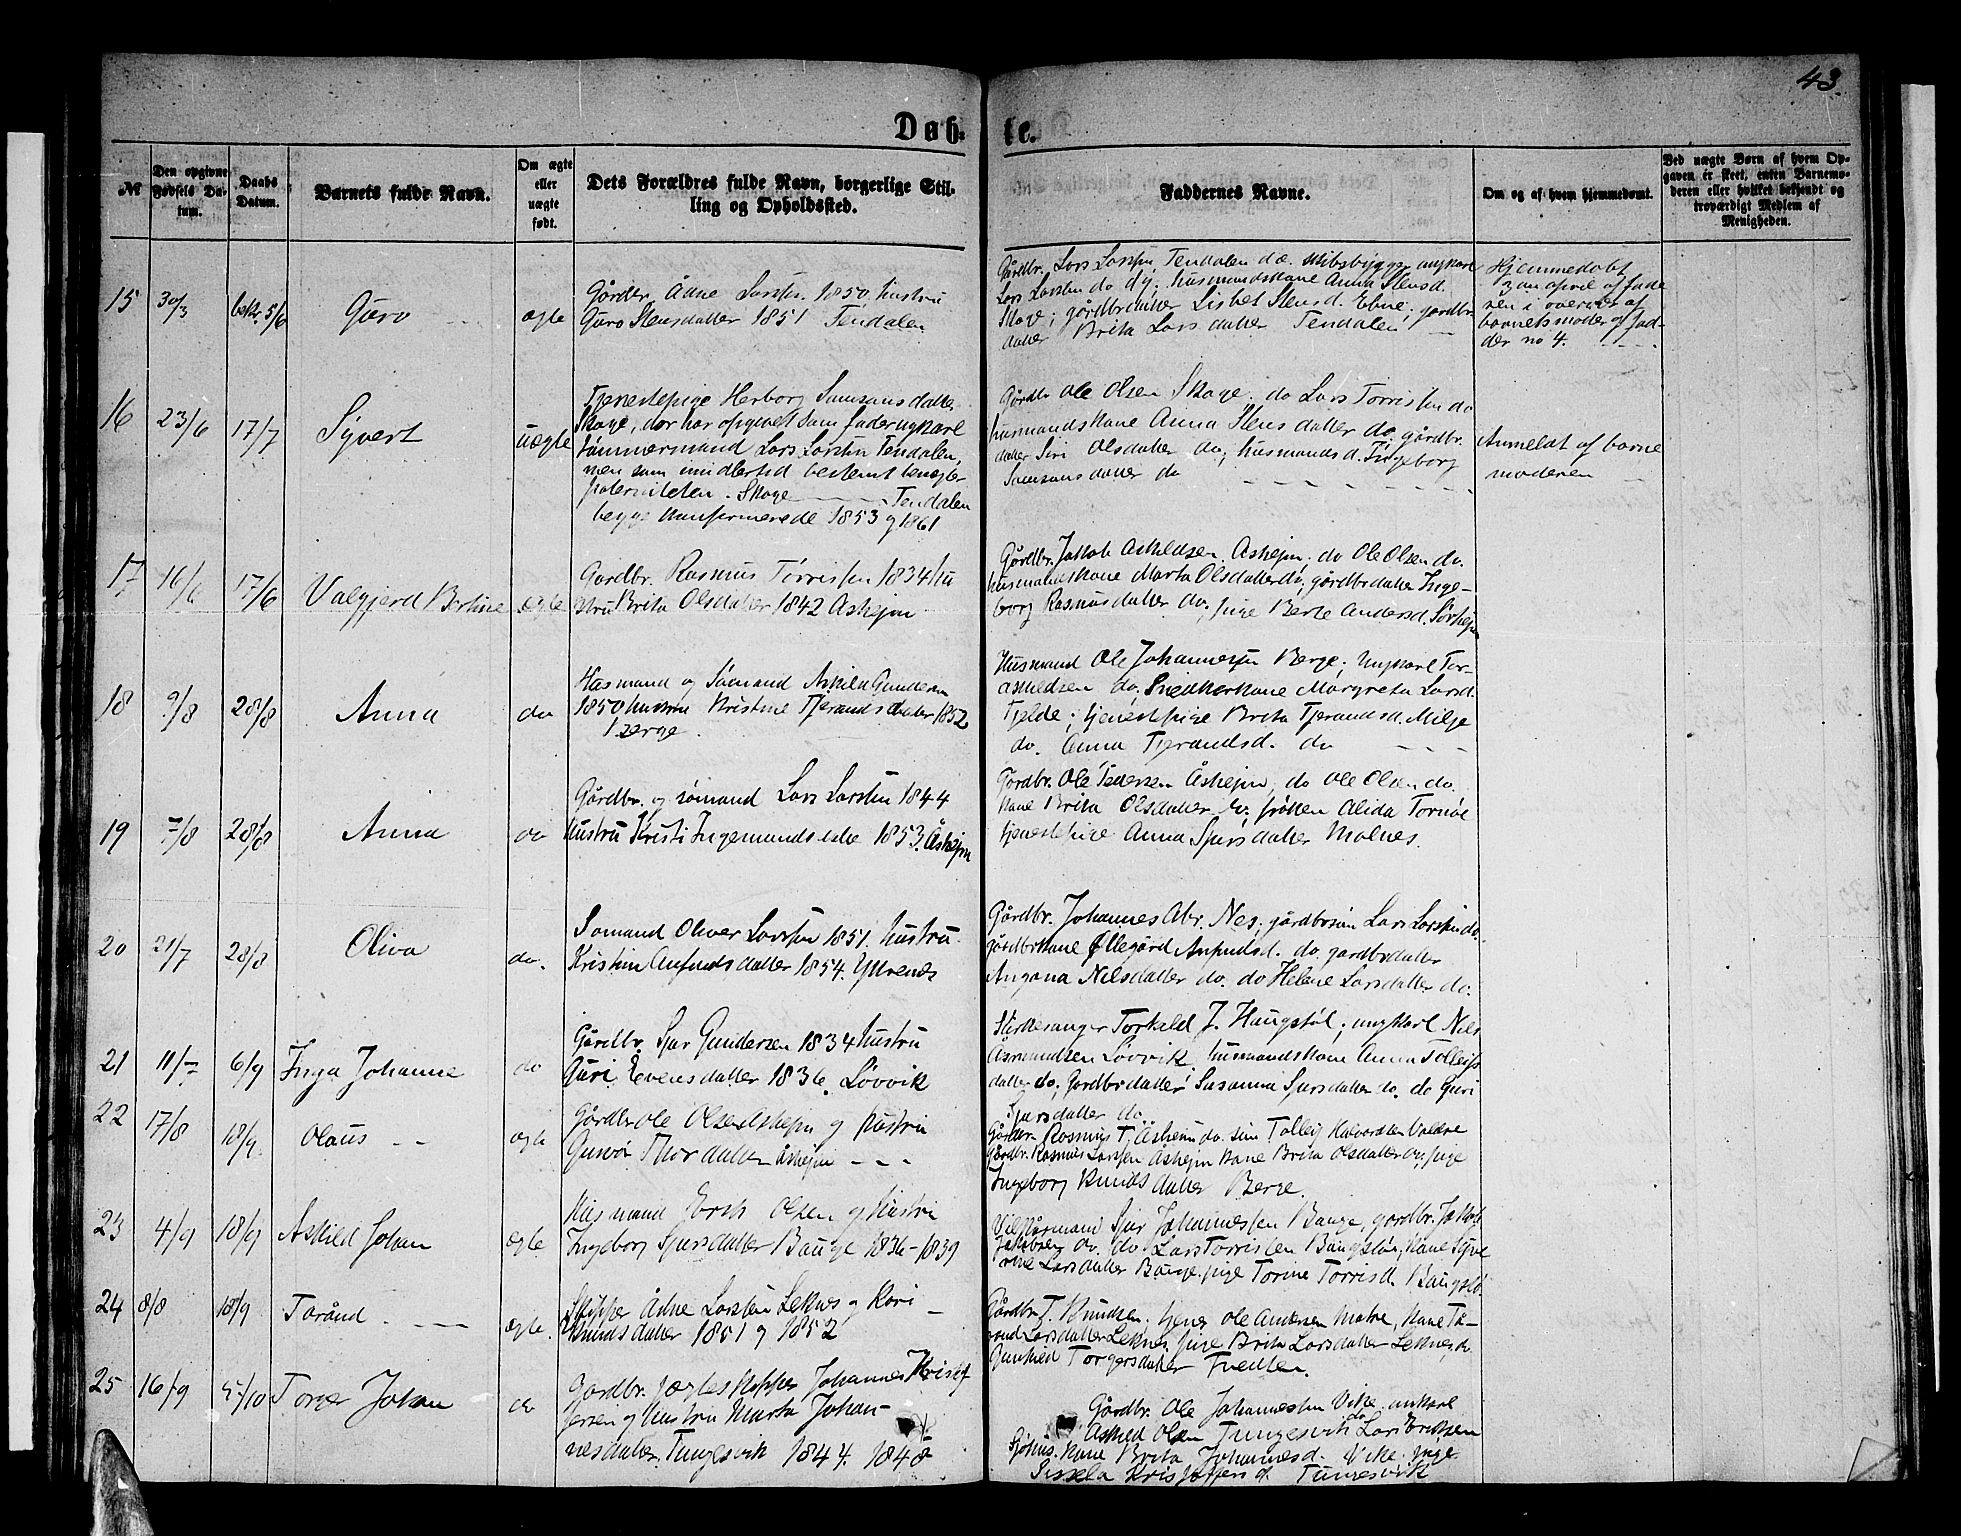 43.
Døb-
te.
№
Den opgivne Fødsels Da-
tum.
Daabs
Datum.
Barnets fulde Navn.
Om ægte
eller
uægte
født.
Dets Forældres fulde Navn, borgerlige Stil-
ling og Opholdssted.
Faddernes Navne.
Om og af hvem hjemmedøbt.
Ved uægte Børn af hvem Op-
gaven er skeet, enten Barnemo-
deren eller hvilket bekjendt og
troværdigt Medlem af
Menigheden.
15
30/3
bekr. 5/6
Guro
ægte
Gårdbr. Ådne Larsen 1850, hustru
Guro Stensdatter 1851 Tendalen
Gårdbr. Lars Larsen Tendalen do. skibsbygg. ungkarl
Lars Larsen do
husmandskone Anna Stensd.
Skoge; gårdbrdatter Lisbet Stensd. Ebne; gårdbr.
datter Brita Larsdatter Tendalen
Hjemmedøbt
3an april af fade
ren i overvær af
barnets moder og fad-
der no 4.
16
23/6
17/7
Sjvert
uægte
Tjenestepige Herborg Samsonsdatter
Skoge, der har opgivet som fader ugkarl
tømmermand Lars Larsen Tendalen,
men som imidlertid bestemt benegter
paterniteten. Skoge - Tendalen
begge konfirmerede 1853 og 1861
Gårdbr Ole Olsen Skoge. do Lars Torrissen do
husmandskone Anna Stensdatter do, gårdbr.
datter Siri Olsdatter do; husmandsd. Ingeborg
Samsonsdatter do
Anmeldt af barne
moderen
17
16/6
17/6
Valgjerd Bertine
ægte
Gardbr. Rasmus Tørrissen 1834 hu
stru Brita Olsdatter 1842 Åshejm
Gårdbr. Jakob Askildsen Åshejm; do Ole Olsen do.
husmandskone Marta Olsdatter do; gårdbrdatter Inge-
borg Rasmusdatter do, pige Berte Andersd. Sørhejm
18
9/8
28/8
Anna
do
Husmand og Sømand Askild Gundersen
1850 hustru Kristine Tjerandsdatter 1852
Berge
Husmand Ole Johannessen Berge; ungkarl Tor-
askildsen do, Snedkerkone Margreta Larsd.
Fjelde; tjenestepige Brita Tjerandsd. Milje
do. Anna Tjerandsd. do
19
7/8
28/8
Anna
do
Gårdbr. og sømand Lars Larsen 1844
hustru Kristi Ingemunds 1853. Åshejm
Gårdbr. Ole Pedersen Åshejm, do Ole Olsen do.
kone Brita Olsdatter do; frøken Alida Tornøe
tjenestepige Anna Sjursdatter Molnes.
20
21/7
28/8
Oliva
do.
Sømand Oliver Larsen 1851. hustru
Kristin Anfindsdatter 1854. Yttrenes
Gårdbr. Johannes Abr. Nes; gårdbrsøn Lars Larsen do.
gårdbrkone Øllegård Anfindsd. do. gårdbrdatter
Angana Nilsdatter do. do Helene Larsdatter do.
21
11/7
6/9
Inga Johanne
do
Gårdbr. Sjur Gundersen 1834 hustru
Guri Evensdatter 1836 Løvvik
Kirkesanger Torkild J. Haugstøl; ungkarl Nils
Åsmundsen Løvvik, husmandskone Anna Tolleifs
datter do; gårdbrdatter Susanna Sjursdatter do. do Guri
Sjursdatter do
22
17/8
18/9
Olaus
ægte
Gårdbr Ole Olsen Åshejm og hustru
Thordatter Åshejm
Gårdbr. Rasmus T. Åshejm do. søn Tolleif Halvordsen Valdre
Gårdbr. Rasmus Larssen Åshejm kone Brita Olsdatter do, pige
Ingeborg Knudsdatter Berge.
23
4/9
18/9
Askild Johan
ægte
Husmand Erik Olsen og hustru
Ingeborg Sjursdatter Bauge 1836-1839
Vilkårmand Sjur Johannessen Bauge, gårdbr. Jakob
Jakobsen do. do Lars Torrissen Baugstøl, kone Syve
rine Larsdatter Bauge. pige Torine Torrisd. Baugstø
24
8/8
18/9
Toråna
ægte.
Skipper Ådne Larsen Leknes og Kari
Knudsdatter 1851 og 1852
Gårdbr T. Knudsen. tjener Ole Andersen Matre, kone To-
Larsdatter Leknes, pige Brita Larsdatter Leknes, do.
Gunhild Torgersdatter
25
16/9
5/10
Torger Johan
do
Gardbr. jægteskipper Johannes Kristof
fersen og hustru Marta Johan-
nesdatter, Tungesvik 1844. 1848
Gårdbr. Ole Johannessen Vike. unkarl
Askild Olsen Tungesvik do Lars Eriksen
kone Brita Johannesd. Vike. pige
Sissela Kristoffersd. Tungesvik